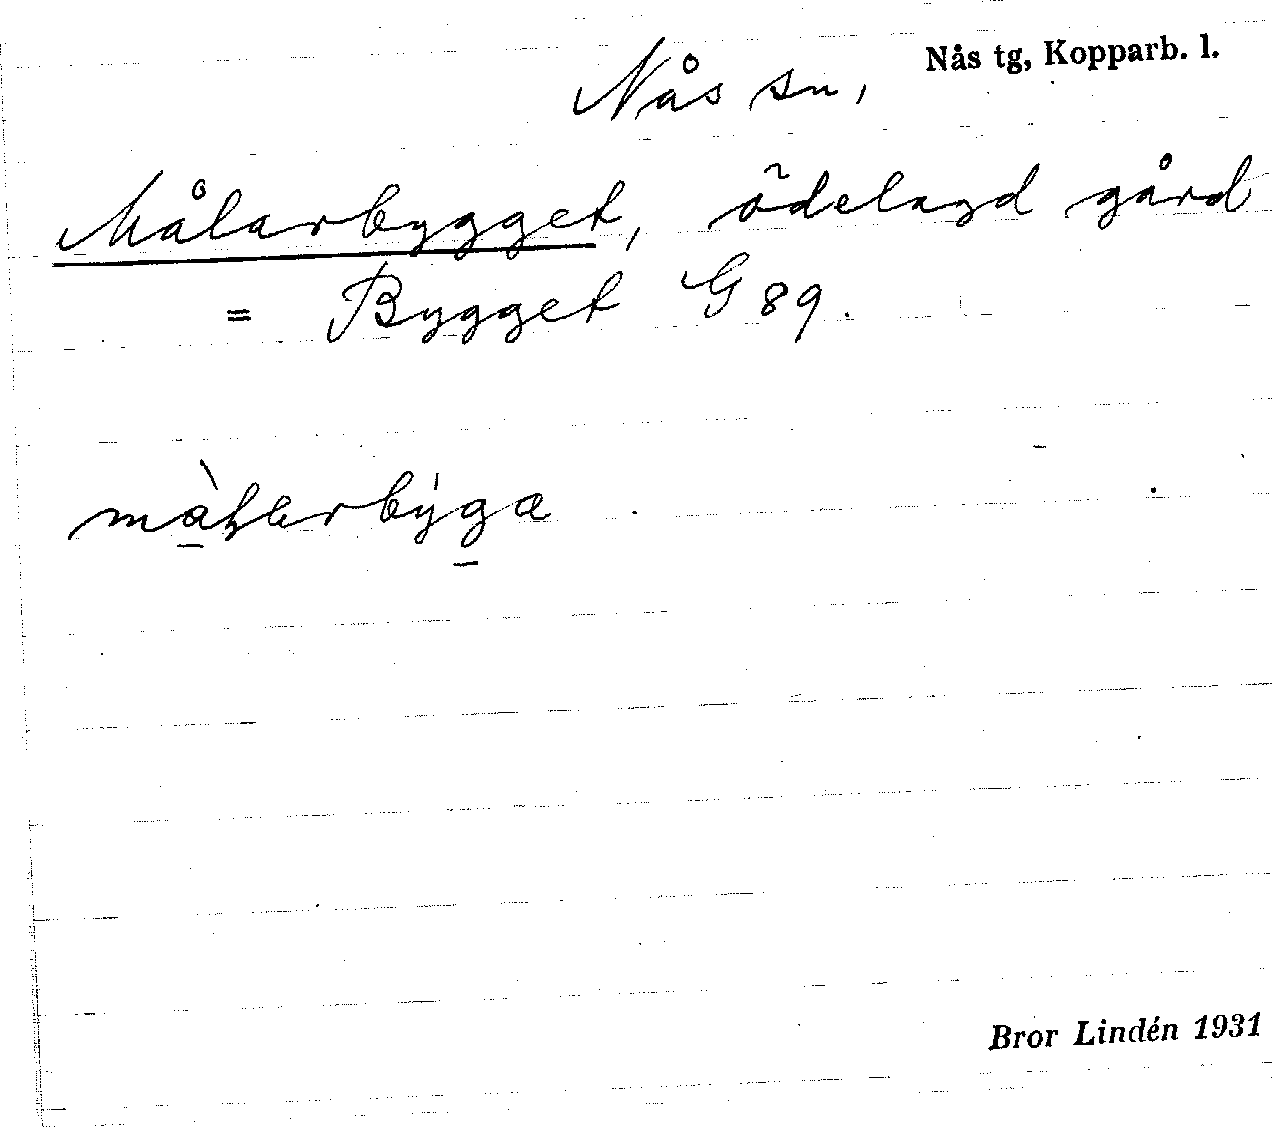 Nås tg, Kopparb. l.
Nås sn,
Målarbygget, ödelagd gård
= Bygget G 89.
Bror Lindén 1931